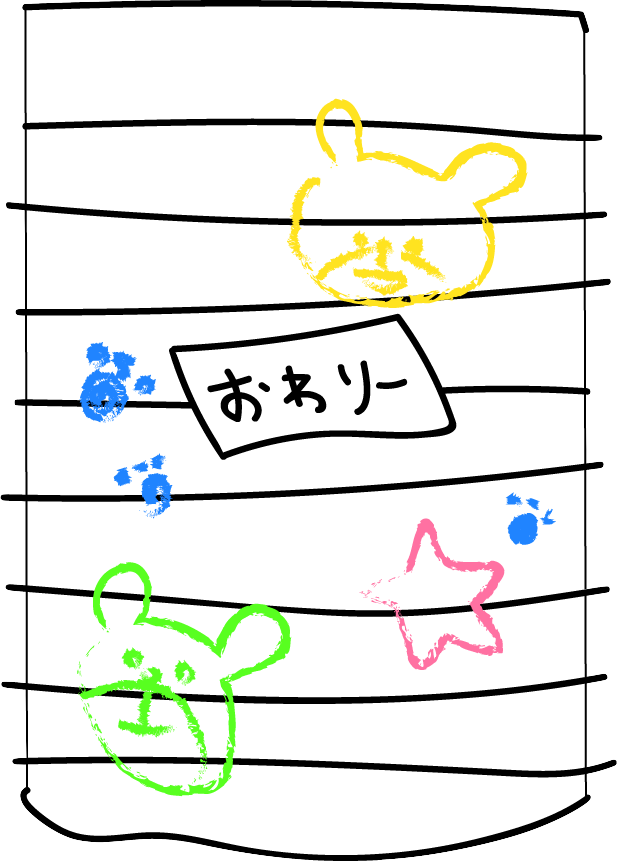 おわりー